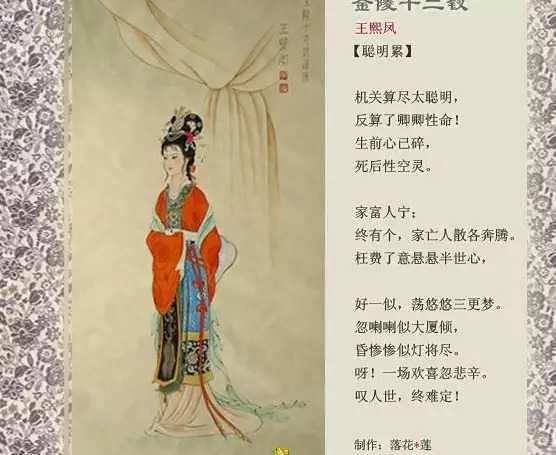 金陵十三钗
王熙凤
【聪明累】
机关算尽太聪明,
反算了卿卿性命!
生前心已碎,
死后性空灵。
家富人宁;
终有个,家亡人散各奔腾。
枉费了意悬悬半世心,
好一似,荡悠悠三更梦。
忽喇喇似大厦倾,
昏惨惨似灯将尽。
呀!一场欢喜忽悲辛。
叹人世,终难定!
制作:落花*莲
王熙凤